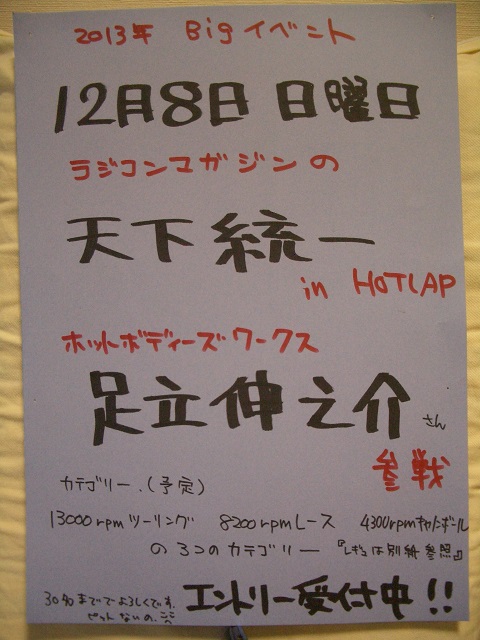 2013年 Bigイベント
12月8日 日曜日
ラジコンマガジンの
天下統一
in HOTLAP
ホットボディーズワークス
足立伸之介さん
参戦
カテゴリー.(予定)
13000rpmツーリング 8200rpmレース 4300rpmキャノンボール
の3つのカテゴリー 『レギュは別紙参照』
30名まででよろしくです。 エントリー受付中!!
ピットないの。